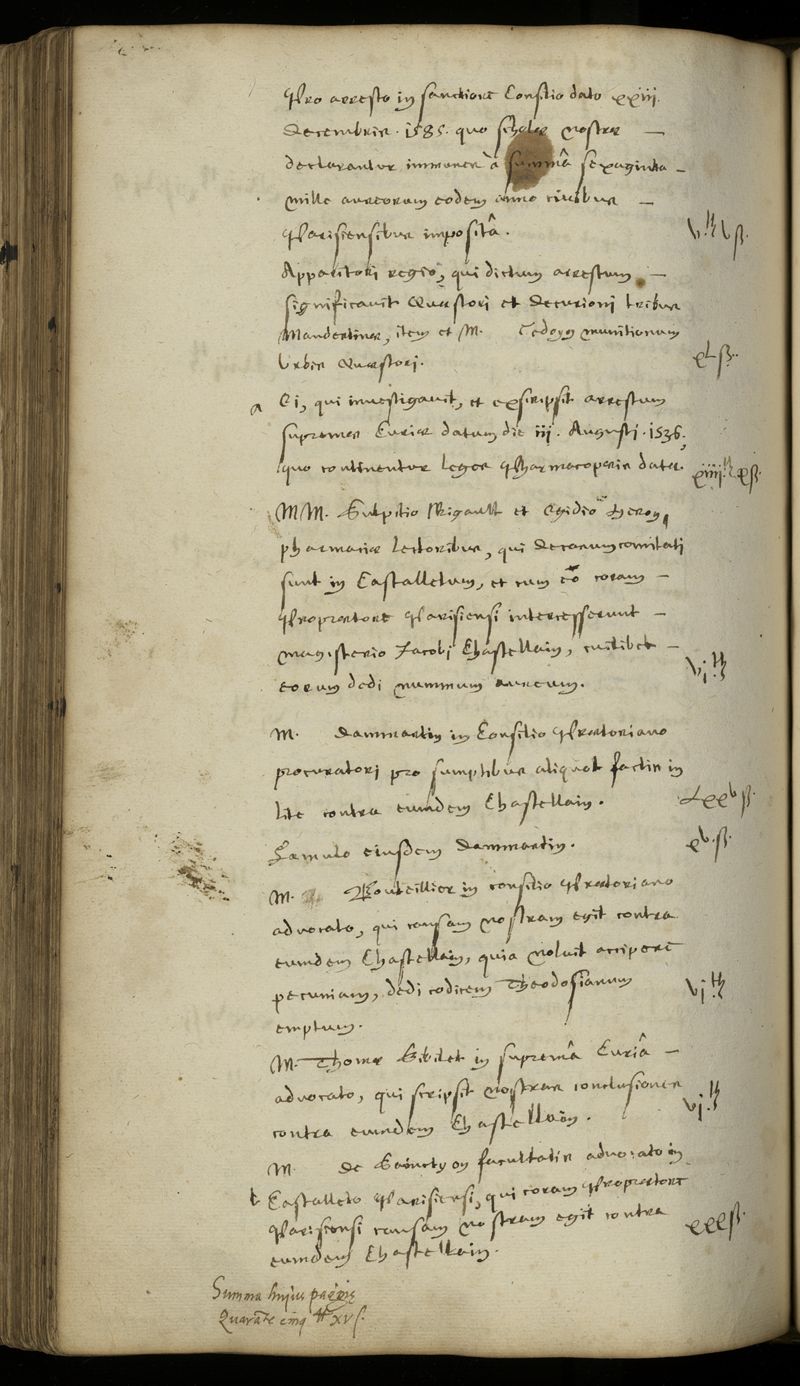 Pro arresto in sanctiore Consilio dato xxiii.
Decembris . 1585. quo scholae nostrae —
declarantur immunes à summâ sexaginta —
mille aureorum eodem anno civibus —
Parisiensibus impositâ. v. ℔ v ß.
Apparitori regio, qui dictum arrestum —
significavit Quaestori et Decurioni tribus
Maubertinae, item et M. munitionum
Urbis Quaestori. xl ß.
a Ei, qui investigavit, et exscripsit arrestum
supremae Curiae datum die iii. Augusti . 1536,
quo continentur leges Pharmacopoeis datae. xiiii. ℔ xß.
MM. Sulpitio Rigault et Egidio Heron,
pharmaciae lectoribus, qui Decanum comitati
sunt in Castalletum, et cum eo coram —
Propraetore Parisiensi intercesserunt —
magisterio Jacobi Chastellain, cuilibet —
eorum dedi nummum aureum. vi. ℔
M. Dammartin in Consilio Praetoriano
procuratori pro sumptibus aliquot factis in
lite contra eumdem Chastellain. lxxv ß.
Famulo eiusdem Dammartin. xv. ß.
M. Bouteillier in consilio Praetoriano
advocato, qui causam nostram egit contra
eumdem Chastellain, quia noluit accipere
pecuniam, dedi codicem Theodosianum vi ℔
emptum.
M. Thomae Sibilet in supremâ Curiâ —
advocato, qui scripsit nostras conclusiones
contra eumdem Chastellain. vi. ℔
M. de facultatis advocato in
b Castalleto Parisiensi, qui coram Propraetore
Parisiensi causam nostram egit contra xxx ß.
eumdem Chastellain.
Summa hujus paginae
Quarāte cinq ℔ xv ß.